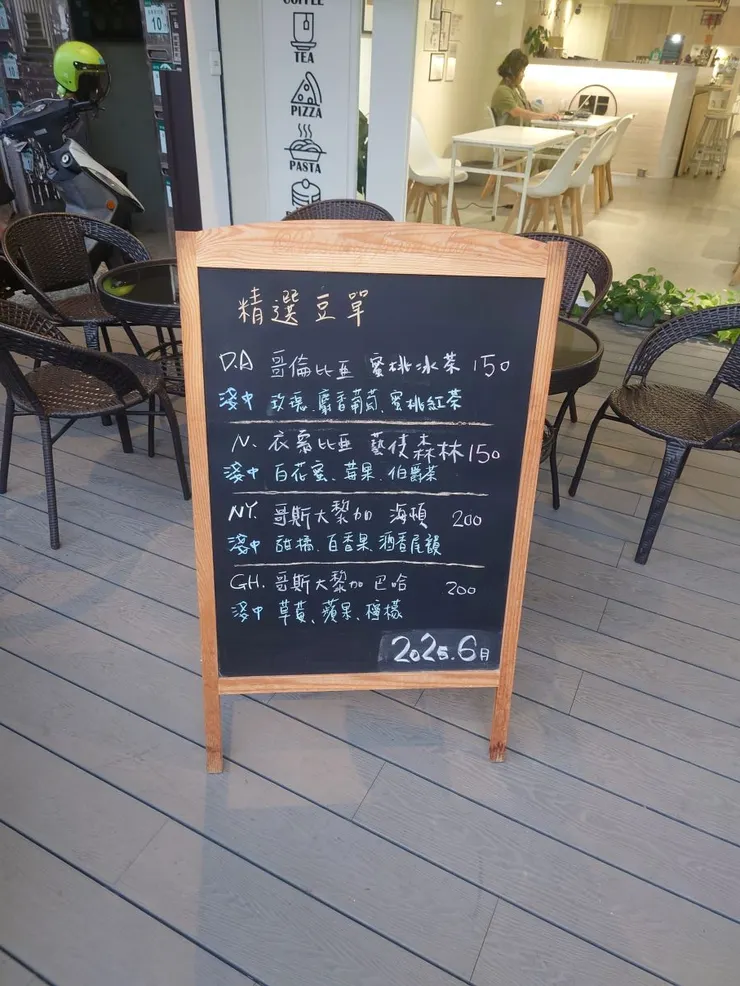 COFFEE
TEA
PIZZA
PASTA
10
精選豆單
D.A 哥倫比亞 蜜桃冰茶 150
淺中 玫瑰、麝香葡萄、蜜桃紅茶
N. 衣索比亞 藝伎森林 150
淺中 百花蜜、莓果、伯爵茶
NY. 哥斯大黎加 海頓 200
淺中 甜橘、百香果、酒香尾韻
GH. 哥斯大黎加 巴哈 200
淺中 草莓、蘋果、檸檬
2025.6月